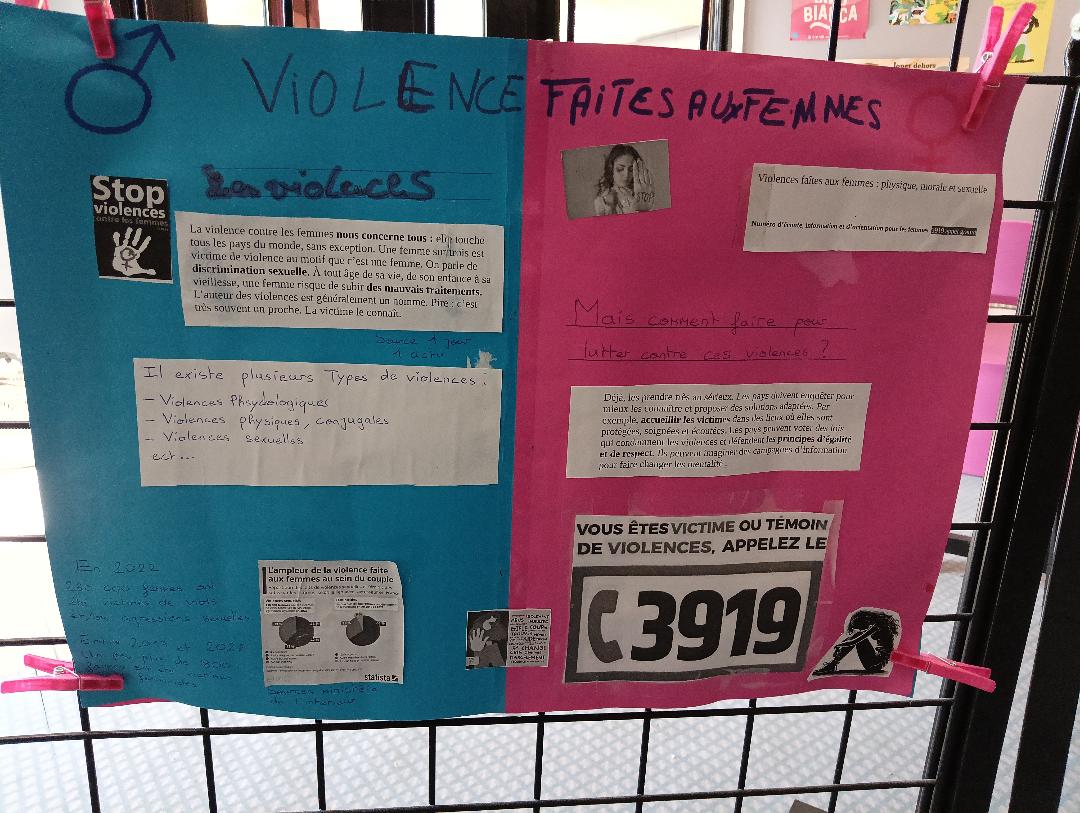 VIOLENCE FAITES AUX FEMMES
Les violences
Stop
violences
contre les femmes
La violence contre les femmes nous concerne tous : elle touche
tous les pays du monde, sans exception. Une femme sur trois est
victime de violence au motif que c'est une femme. On parle de
discrimination sexuelle. À tout âge de sa vie, de son enfance à sa
vieillesse, une femme risque de subir des mauvais traitements.
L'auteur des violences est généralement un homme. Pire : c'est
très souvent un proche. La victime le connaît.
Source 1 jour
1 actu
Il existe plusieurs Types de violences :
- Violences Phsycologiques
- Violences physiques, conjugales
- Violences sexuelles
ect...
En 2022
femmes ont
été victimes de viols
et/ou agressions sexuelles
Entre 2009 et 2021
plus de 900
L'ampleur de la violence faite
aux femmes au sein du couple
statista
Sources ministère
de l'intérieur
STOP
Violences faites aux femmes : physique, morale et sexuelle
Numéro d'écoute, information et d'orientation pour les femmes 3919 appel gratuit
Mais comment faire pour
lutter contre ces violences ?
Déjà, les prendre très au sérieux. Les pays doivent enquêter pour
mieux les connaître et proposer des solutions adaptées. Par
exemple, accueillir les victimes dans des lieux où elles sont
protégées, soignées et écoutées. Les pays peuvent voter des lois
qui condamnent les violences et défendent les principes d'égalité
et de respect. Ils peuvent imaginer des campagnes d'information
pour faire changer les mentalité .
VOUS ÊTES VICTIME OU TÉMOIN
DE VIOLENCES, APPELEZ LE
3919
BIANCA